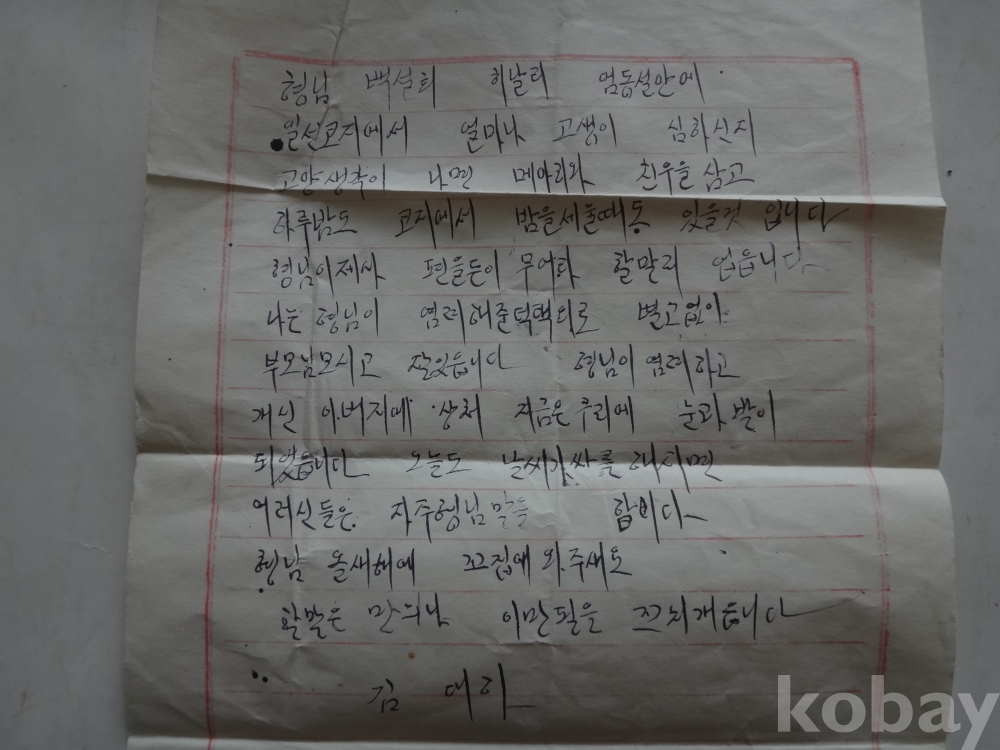 형님 백설희 히날리 엄동설안에
일선코지에서 얼마나 고생이 심하신지
고양생각이 나면 메아리와 친우을 삼고
하루밤도 코지에서 밤을세울때동 있을것 입니다
형님이제사 편을든이 무어라 할말리 업읍니다
나는 형님이 염려해준덕택의로 별고없이
부모님모시고 잘있읍니다 형님이 염려하고
개신 아버지에 상처 지금은 우리에 눈과 발이
되었읍니다 오늘도 날씨가 싸를해지면
어러신들은 자주형님 말을 합니다
형님 올새해에 꼬집에 와주새도
할말은 만의나 이만필을 끄치개읍니다
김 대리
kobay